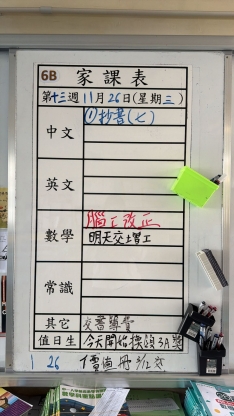 6B 家課表
第十三週 11月26日(星期三)
中文
①抄書(七)
英文
數學
腦工改正
明天交堂工
常識
其它
交書簿費
值日生
今天開始換領3A獎
1 26
價值冊 3/12交